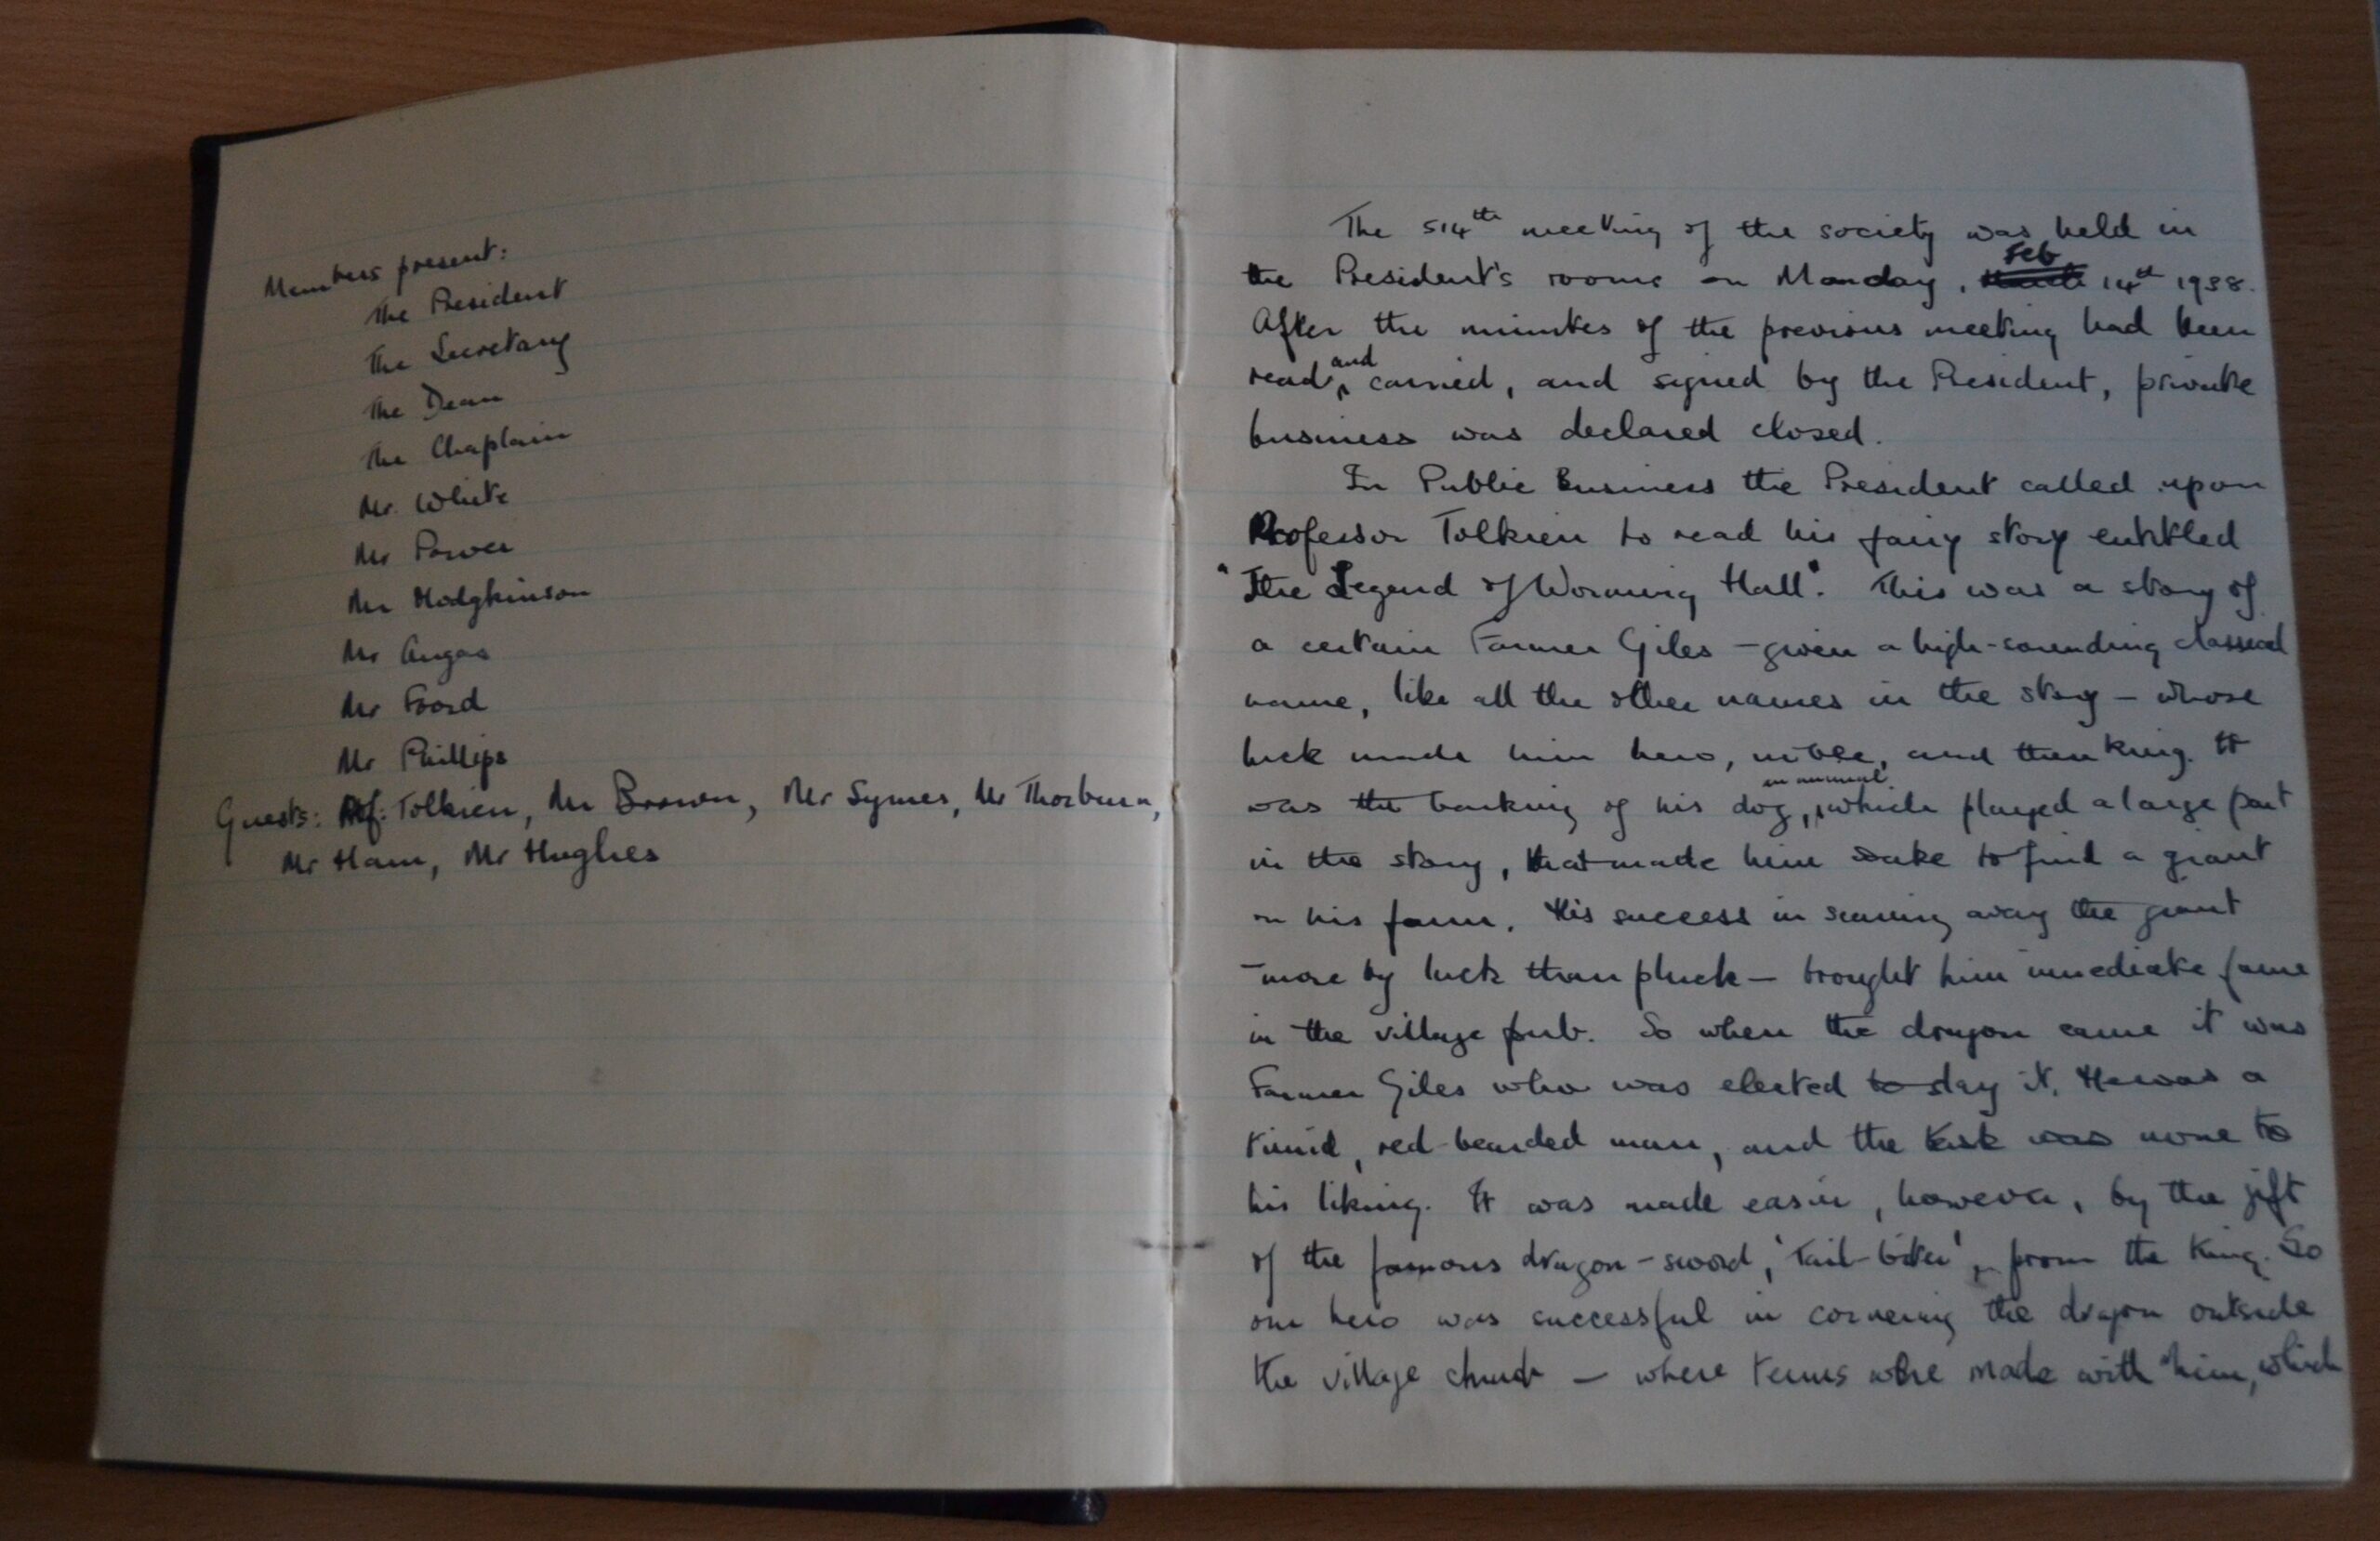 Members present:
The President
The Secretary
The Dean
The Chaplain
Mr. White
Mr Power
Mr Hodgkinson
Mr Angas
Mr Foord
Mr Phillips
Guests: Prof. Tolkien, Mr Brown, Mr Symes, Mr Thorburn,
Mr Ham, Mr Hughes
The 514th meeting of the society was held in
the President's rooms on Monday, Feb 14th 1938.
After the minutes of the previous meeting had been
read, and carried, and signed by the President, private
business was declared closed.
In Public Business the President called upon
Professor Tolkien to read his fairy story entitled
"The Legend of Worming Hall". This was a story of
a certain Farmer Giles – given a high-sounding classical
name, like all the other names in the story – whose
luck made him hero, noble, and then king. It
was the barking of his dog, an animal which played a large part
in the story, that made him wake to find a giant
on his farm. His success in scaring away the giant
– more by luck than pluck – brought him immediate fame
in the village pub. So when the dragon came it was
Farmer Giles who was elected to slay it. He was a
timid, red-bearded man, and the task was none to
his liking. It was made easier, however, by the gift
of the famous dragon-sword, 'Tail-biter', from the King. So
our hero was successful in cornering the dragon outside
the village church – where terms were made with him, which